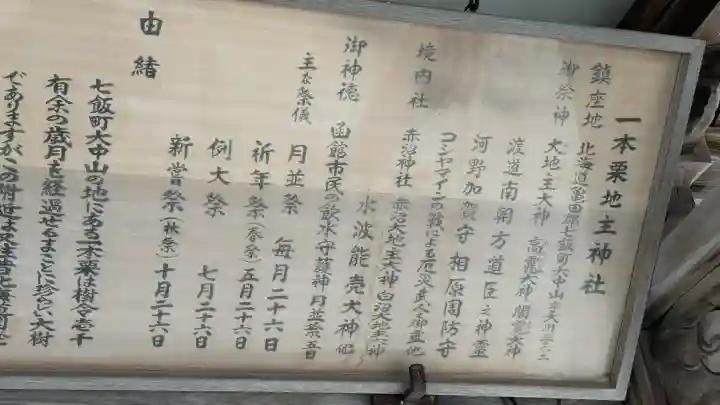 一本栗地主神社
鎮座地 北海道亀田郡七飯町大中山字大川
御祭神 大地主大神 高龗大神 闇龗大神
渡道南朝方道臣之神霊
河野加賀守 相原周防守
コシヤマインの戦による厄災武人御霊他
境内社 赤沼神社 赤沼大地主大神 白沼地主大神
水波能売大神 他
御神徳 函館市民の飲水守護神 月並祭 五日
主な祭儀 月並祭 毎月二十六日
祈年祭(春祭)五月二十六日
例大祭 七月二十六日
新嘗祭(秋祭)十月二十六日
由緒
七飯町大中山の地にある一本栗は樹令壱千
有余の歳月を経過せるまことに珍らしい大樹
でありますが、この附近